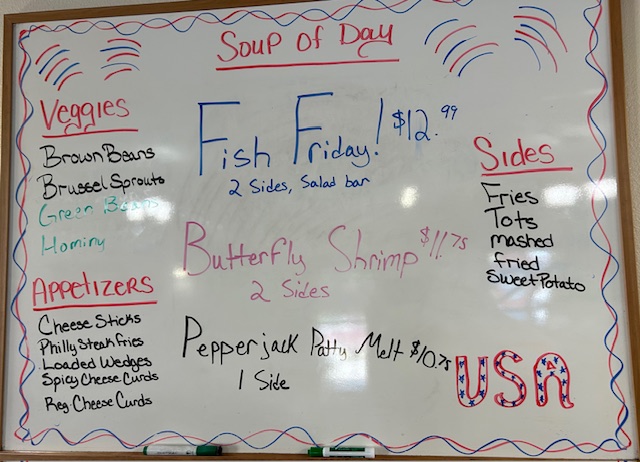 Soup Of Day
Veggies
Brown Beans
Brussel Sprouts
Green Beans
Hominy
Appetizers
Cheese Sticks
Philly Steak fries
Loaded Wedges
Spicy Cheese Curds
Reg Cheese Curds
Fish Friday! $12.99
2 Sides, Salad bar
Butterfly Shrimp $11.75
2 Sides
Pepperjack Patty Melt $10.75
1 Side
Sides
Fries
Tots
Mashed
Fried
Sweet Potato
USA